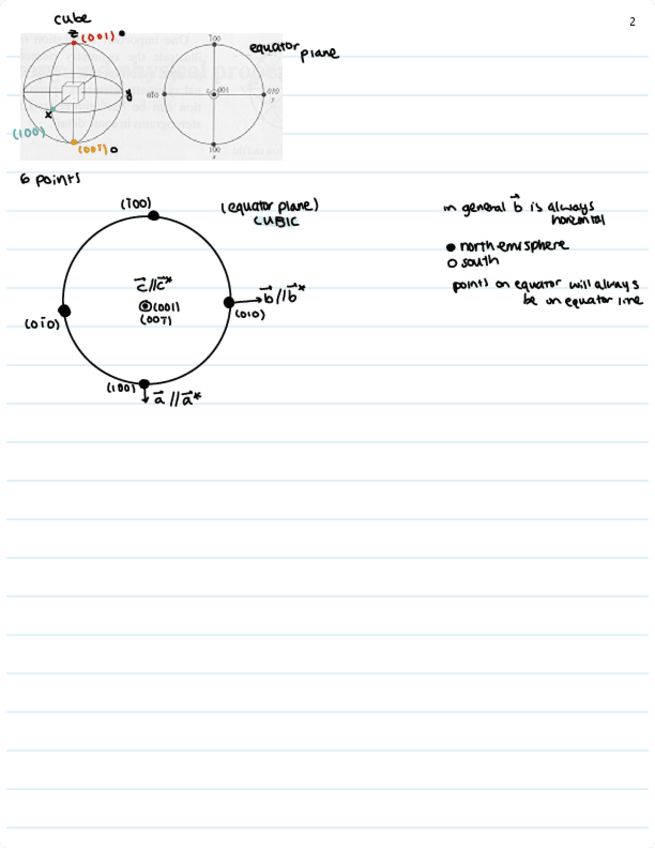 2
cube
z (001) ●
equator
plane
y
x
(100)
(001̄) o
1̄00
01̄0
001
010
y
100
x
6 points
(1̄00)
(equator plane)
CUBIC
c⃗//c⃗*
(001)
(001̄)
b⃗//b⃗*
(010)
(01̄0)
(100)
a⃗//a⃗*
in general b⃗ is always
horizontal
● north emisphere
o south
points on equator will always
be on equator line